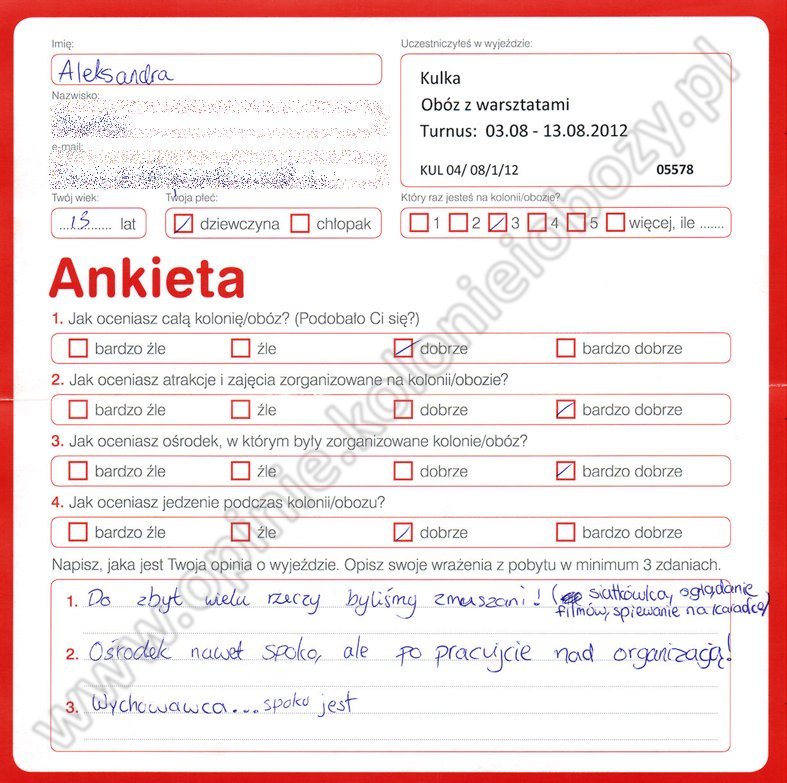 Imię:
Aleksandra
Uczestniczyłeś w wyjeździe:
Kulka
Obóz z warsztatami
Turnus: 03.08 - 13.08.2012
KUL 04/ 08/1/12 05578
Nazwisko:
e-mail:
Twój wiek:
...13....... lat
Twoja płeć:
dziewczyna chłopak
Który raz jesteś na kolonii/obozie?
1 2 3 4 5 więcej, ile .......
Ankieta
1. Jak oceniasz całą kolonię/obóz? (Podobało Ci się?)
bardzo źle źle dobrze bardzo dobrze
2. Jak oceniasz atrakcje i zajęcia zorganizowane na kolonii/obozie?
bardzo źle źle dobrze bardzo dobrze
3. Jak oceniasz ośrodek, w którym były zorganizowane kolonie/obóz?
bardzo źle źle dobrze bardzo dobrze
4. Jak oceniasz jedzenie podczas kolonii/obozu?
bardzo źle źle dobrze bardzo dobrze
Napisz, jaka jest Twoja opinia o wyjeździe. Opisz swoje wrażenia z pobytu w minimum 3 zdaniach.
1. Do zbyt wielu rzeczy byliśmy zmuszani! ( siatkówka, oglądanie
filmów, spiewanie na )
2. Ośrodek nawet spoko, ale po pracujcie nad organizacją!
3. Wychowawca... spoko jest
www.opinie.kolonieiobozy.pl